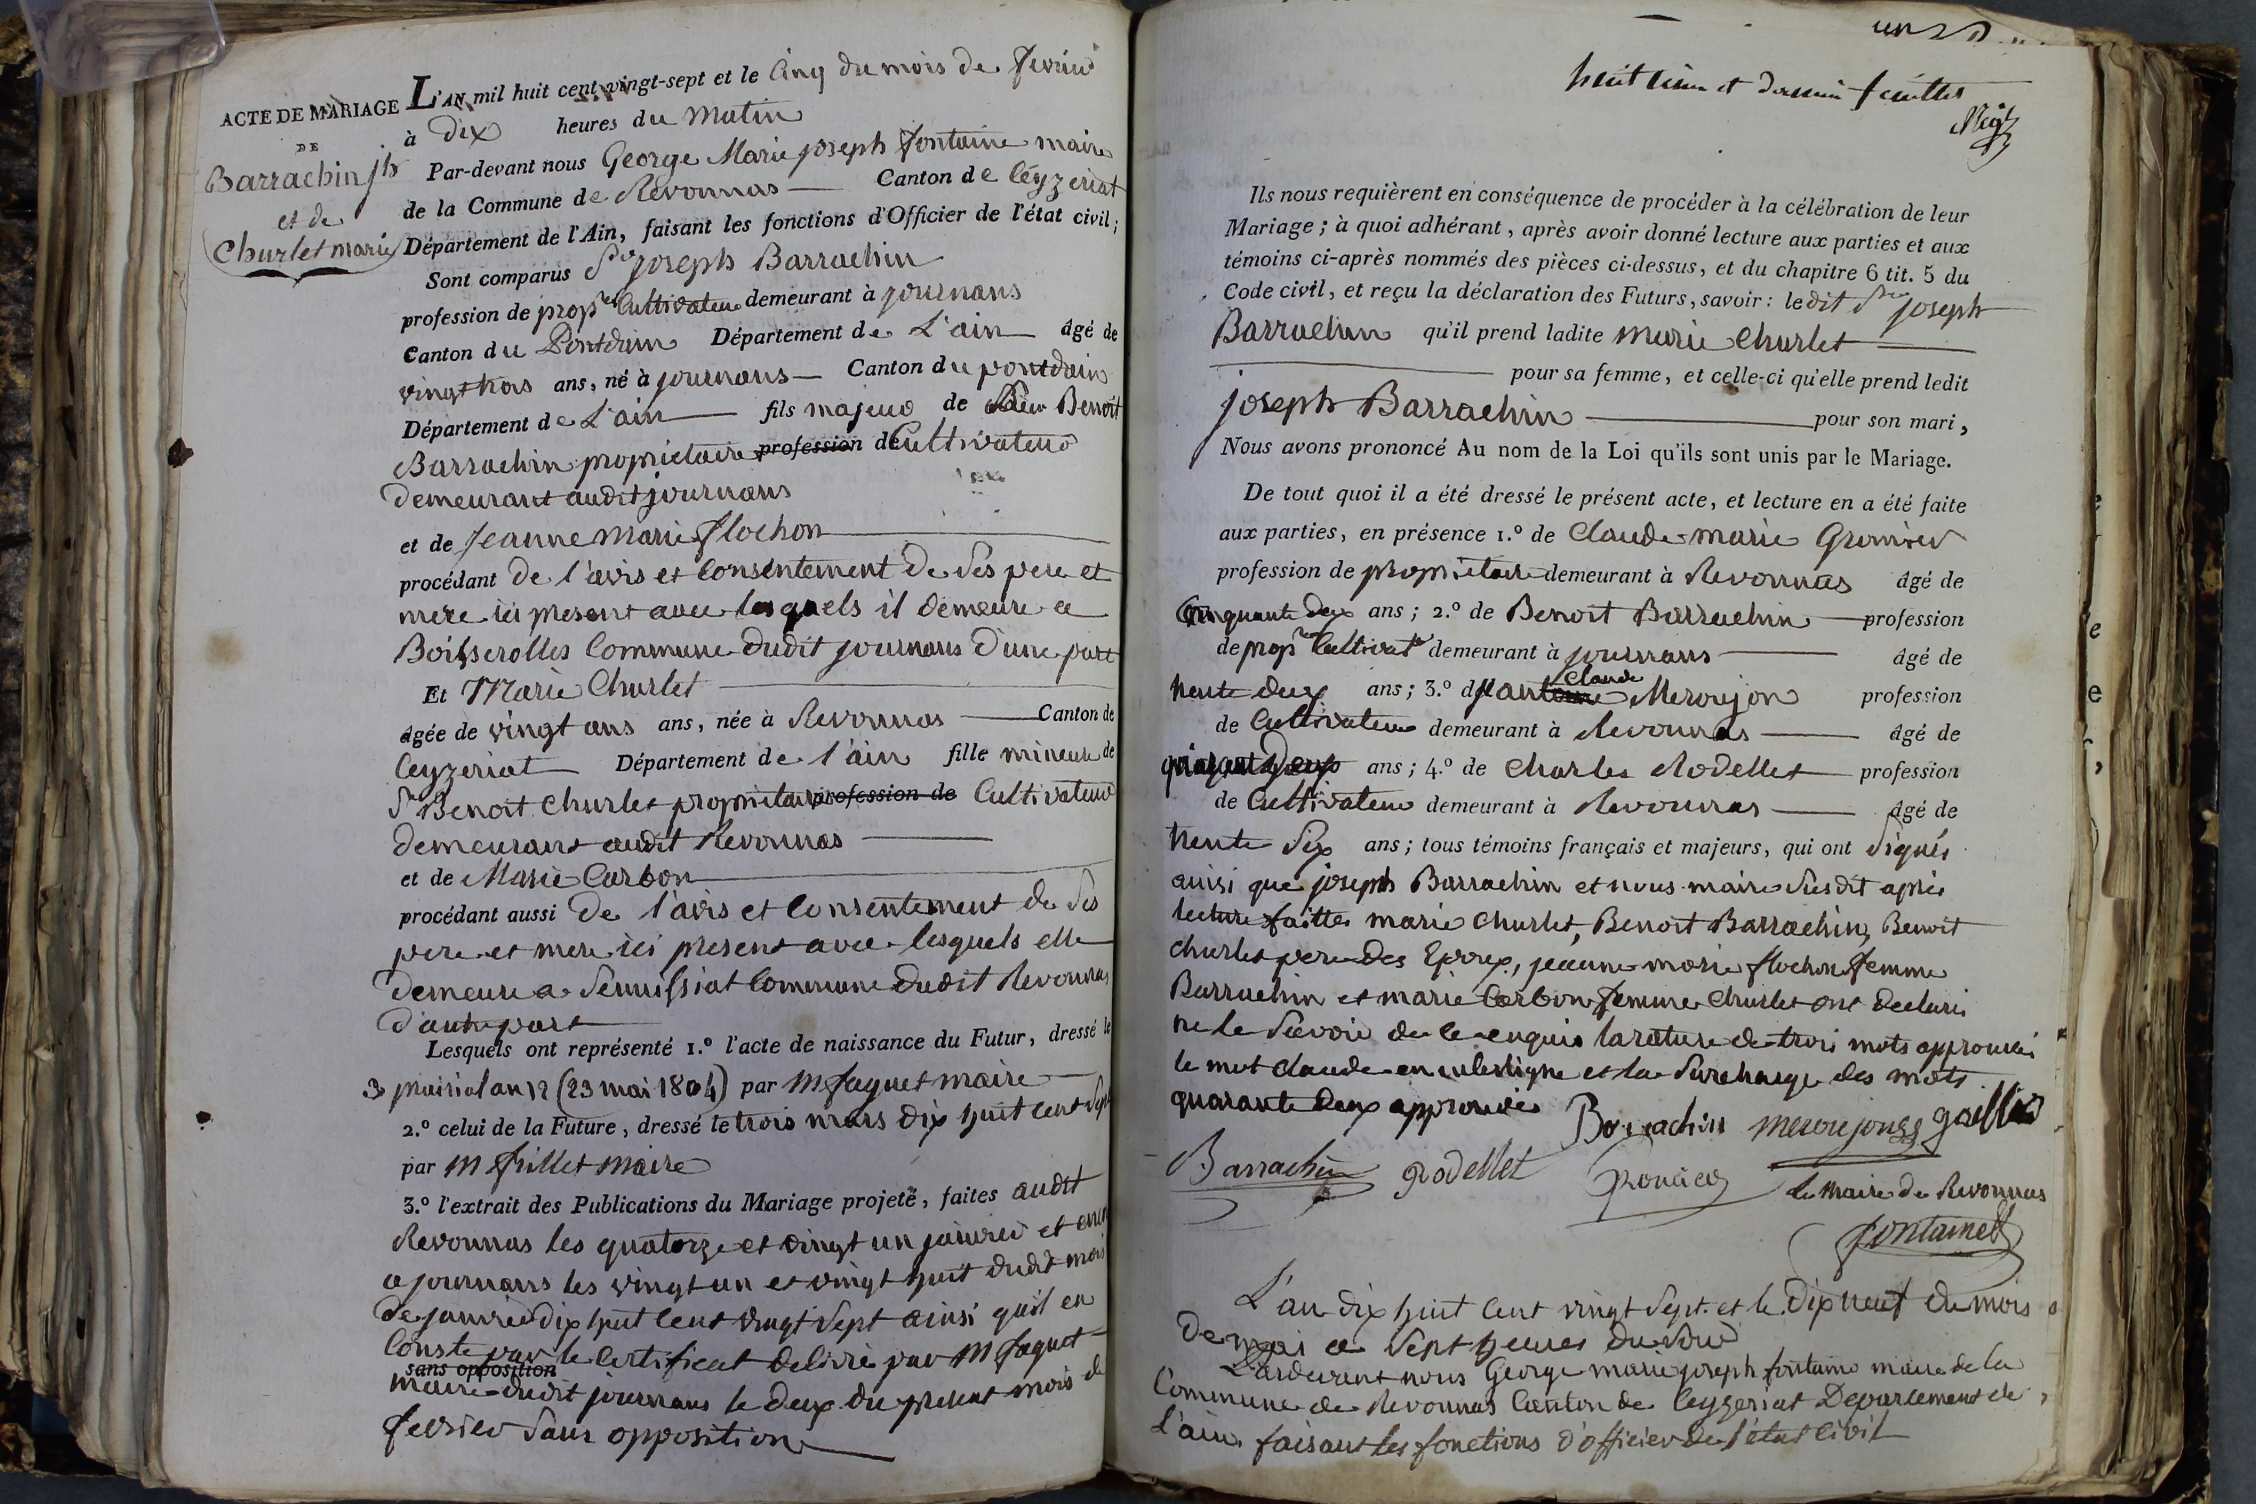 ACTE DE MARIAGE
DE
Barrachin jh
et de
Churlet marie
L'AN mil huit cent vingt-sept et le Cinq du mois de fevrier
à Dix heures du Matin
Par-devant nous George Marie joseph fontaine maire
de la Commune de Revonnas Canton de Céyzeriat
Département de l'Ain, faisant les fonctions d'Officier de l'état civil;
Sont comparus Sr joseph Barrachin
profession de propre Cultivateur demeurant à journans
Canton du Pontdain Département de L'ain âgé de
vingt trois ans, né à journans Canton du pontdain
Département de L'ain fils majeur de Sieur Benoit
Barrachin propriétaire profession de Cultivateur
demeurant audit journans
et de Jeanne Marie flochon
procédant De l'avis et Consentement De Ses pere et
mere ici present avec lesquels il demeure a
Boisserolles Commune dudit journans D'une part
Et Marie Churlet
âgée de vingt ans ans, née à Revonnas Canton de
Ceyzeriat Département de l'ain fille mineure de
Sr Benoit Churlet propriétaire profession de Cultivateur
demeurant audit Revonnas
et de Marie Carbon
procédant aussi De l'avis et Consentement de Ses
pere et mere ici present avec lesquels elle
demeure a Senissiat Commune dudit Revonnas
D'autre part
Lesquels ont représenté 1.º l'acte de naissance du Futur, dressé le
3 prairial an 12 (23 mai 1804) par M faguet maire
2.º celui de la Future, dressé le trois mars dix huit cent Sept
par M frillet maire
3.º l'extrait des Publications du Mariage projeté, faites audit
Revonnas les quatorze et vingt un janvier et
a journans les vingt un et vingt huit dudit mois
de janvier dix huit Cent vingt Sept ainsi qu'il en
Conste par le Certificat délivré par M faguet
sans opposition
maire dudit journans le deux du present mois de
fevrier Sans opposition
huitieme et dernier feuillet
Ils nous requièrent en conséquence de procéder à la célébration de leur
Mariage; à quoi adhérant, après avoir donné lecture aux parties et aux
témoins ci-après nommés des pièces ci-dessus, et du chapitre 6 tit. 5 du
Code civil, et reçu la déclaration des Futurs, savoir: ledit Sr joseph
Barrachin qu'il prend ladite Marie Churlet
pour sa femme, et celle-ci qu'elle prend ledit
joseph Barrachin pour son mari,
Nous avons prononcé Au nom de la Loi qu'ils sont unis par le Mariage.
De tout quoi il a été dressé le présent acte, et lecture en a été faite
aux parties, en présence 1.º de Claude marie
profession de propriétaire demeurant à Revonnas âgé de
Cinquante Deux ans; 2.º de Benoit Barrachin profession
de propre Cultivatr demeurant à journans âgé de
trente deux ans; 3.º de
Claude
Meroujon profession
de Cultivateur demeurant à Revonnas âgé de
quarante Deux ans; 4.º de Charles Rodellet profession
de Cultivateur demeurant à Revonnas âgé de
trente Six ans; tous témoins français et majeurs, qui ont Signés
ainsi que joseph Barrachin et nous maire Susdit après
lecture faitte marie Churlet, Benoit Barrachin, Benoit
Churlet pere des Epoux, jeanne marie flochon femme
Barrachin et marie Carbon femme Churlet ont declaré
ne le Savoir de ce enquis la rature de trois mots approuvés
le mot Claude en interligne et la Surcharge des mots
quarante Deux approuvés
Barrachin meroujon
Barrachin Rodellet
le Maire de Revonnas
fontaine
L'an dix huit Cent vingt Sept et le dix neuf du mois
De mai a Sept heures du Soir
Pardevant nous George marie joseph fontaine maire de la
Commune de Revonnas Canton de Ceyzeriat Departement de
L'ain faisant les fonctions d'officier de l'état Civil